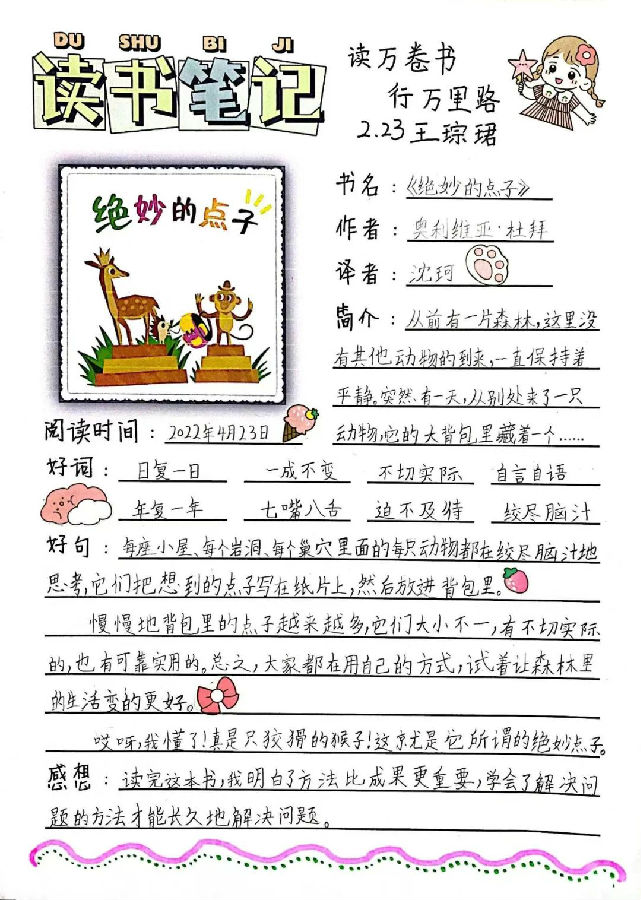 DU SHU BI JI
读书笔记
读万卷书
行万里路
2.23王琮珺
绝妙的点子
书名：《绝妙的点子》
作者：奥利维亚·杜拜
译者：沈珂
简介：从前有一片森林，这里没
有其他动物的到来，一直保持着
平静。突然有一天，从别处来了一只
动物，它的大背包里藏着一个……
阅读时间：2022年4月23日
好词：日复一日 一成不变 不切实际 自言自语
年复一年 七嘴八舌 迫不及待 绞尽脑汁
好句：每座小屋、每个岩洞、每个巢穴里面的每只动物都在绞尽脑汁地
思考，它们把想到的点子写在纸片上，然后放进背包里。
慢慢地背包里的点子越来越多，它们大小不一，有不切实际
的，也有可靠实用的。总之，大家都在用自己的方式，试着让森林里
的生活变的更好。
哎呀，我懂了！真是只狡猾的猴子！这就是它所谓的绝妙点子。
感想：读完这本书，我明白了方法比成果更重要，学会了解决问
题的方法才能长久地解决问题。